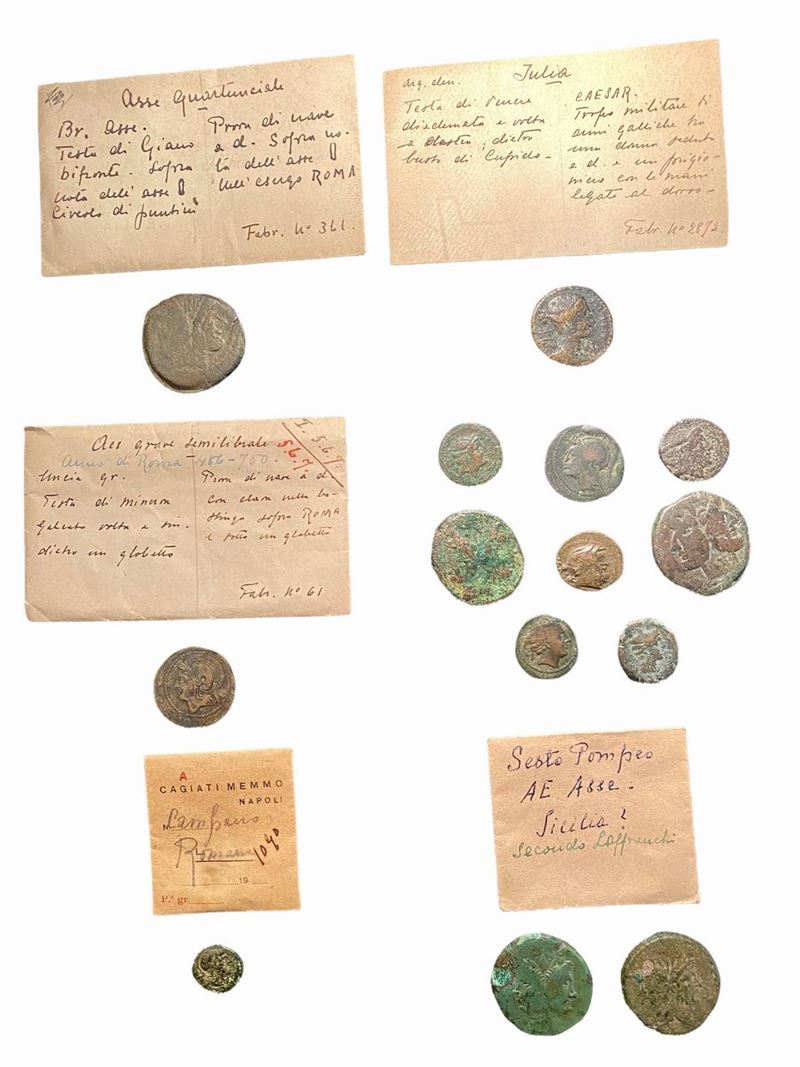 Asse quartunciale
Br. Asse.
Testa di Giano
bifronte. Sopra
nota dell'asse
Circolo di puntini
Prora di nave
a d. Sopra no-
ta dell'asse
nell'esergo ROMA
Fabr. Nº 361.
Julia
arg. den.
Testa di Venere
diademata e volta
a destra; dietro
busto di Cupido-
CAESAR.
Trofeo militare di
armi galliche tra
una donna seduta
a d. e un prigio-
niero con le mani
legate al dorso-
Fabr. Nº 2872
Aes grave semilibrale
Anno di Roma 486-
Uncia gr.
Testa di minerva
galeata volta a sin.
dietro un globetto
Prora di nave a d.
con clava nella
sopra ROMA
e sotto un globetto
Fabr. Nº 61
I. 5.6.7.
5.6.7.
A
CAGIATI MEMMO
NAPOLI
N
Romano
1090
19
P.º gr.
Sesto Pompeo
AE Asse.
Sicilia?
Secondo Laffranchi